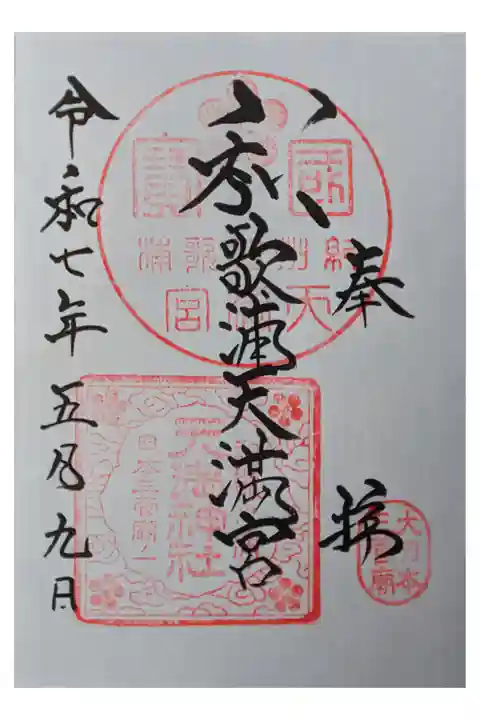 奉拝
和歌浦天満宮
令和七年五月九日
國寶
紀州歌浦
天満宮
天満神社
日本三菅廟ノ一
大日本
三菅廟